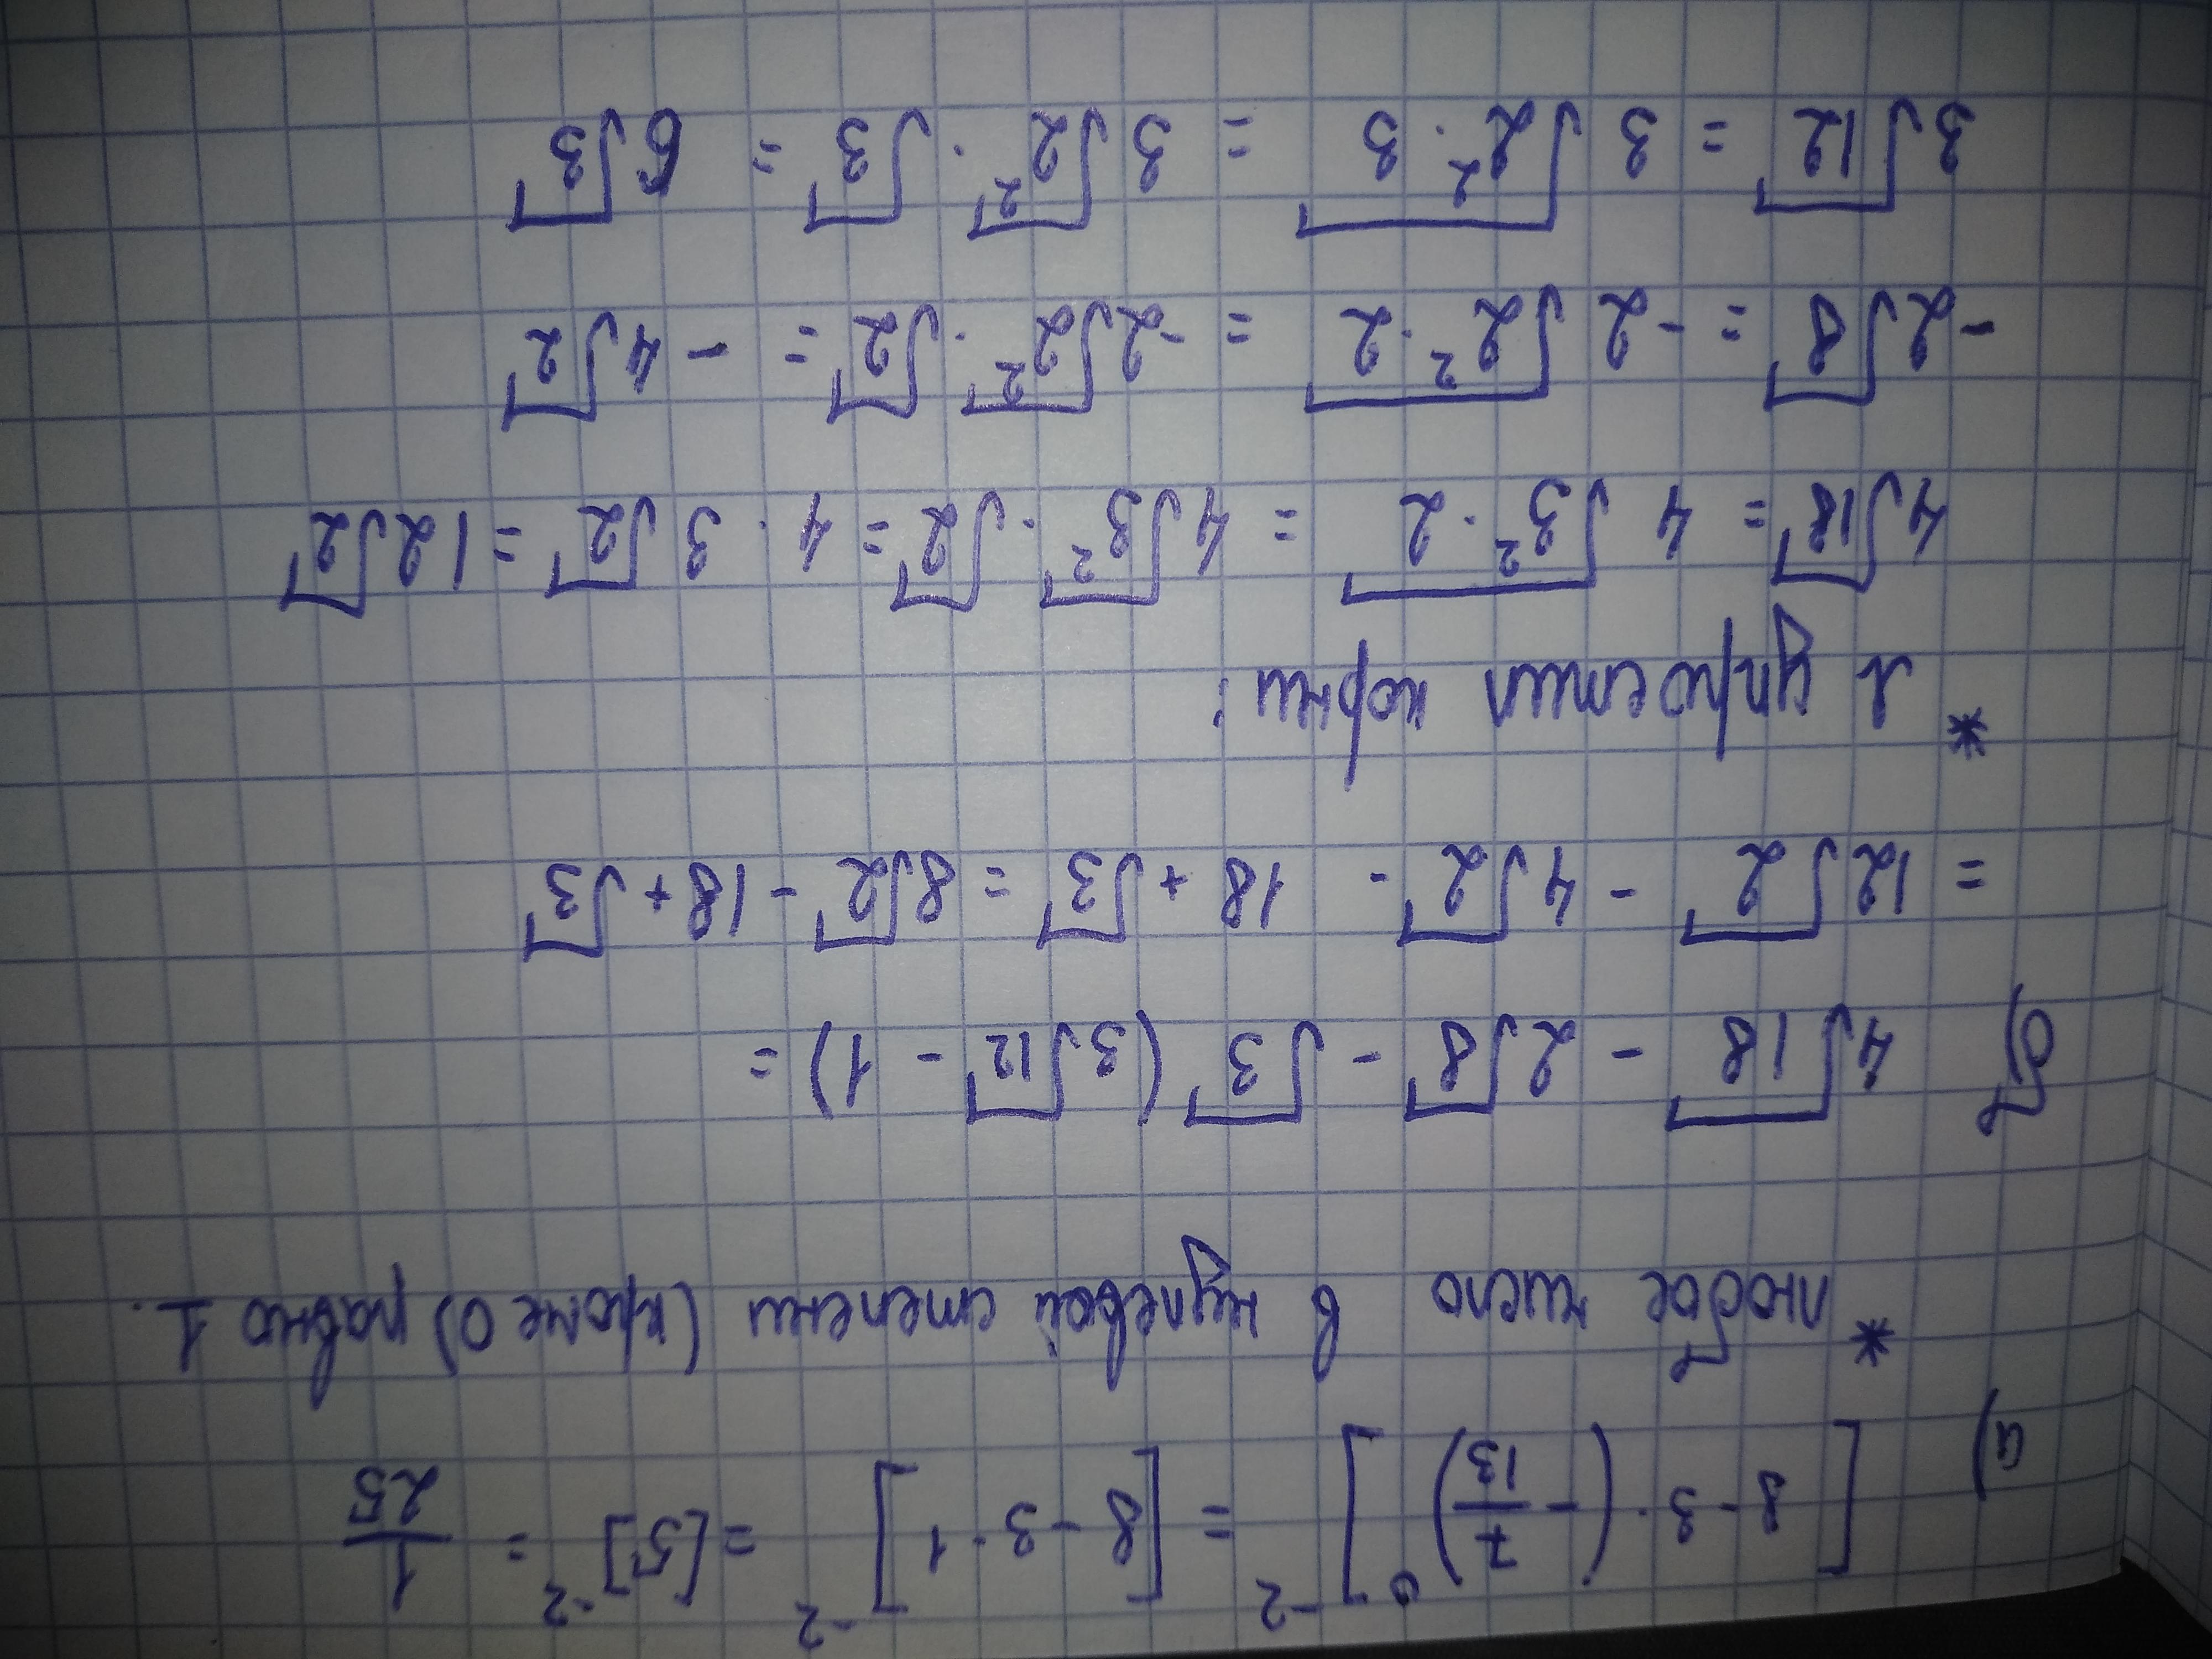 а) [8-3·(-7/13)⁰]⁻² = [8-3·1]⁻² = [5]⁻² = 1/25
* любое число в нулевой степени (кроме 0) равно 1.
б) 4√18 - 2√8 - √3 (3√12 - 1) =
= 12√2 - 4√2 - 18 + √3 = 8√2 - 18 + √3
* упростим корни:
4√18 = 4√(3²·2) = 4√3² · √2 = 4 · 3√2 = 12√2
-2√8 = -2√(2²·2) = -2√2² · √2 = -4√2
3√12 = 3√(2²·3) = 3√2² · √3 = 6√3